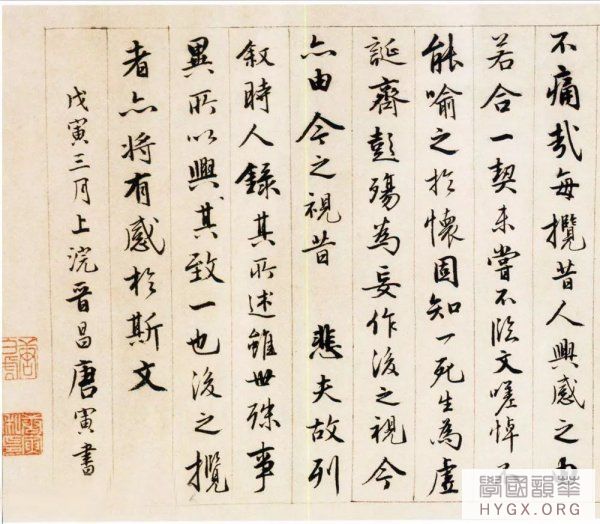 不痛哉每攬昔人興感之由
若合一契未嘗不臨文嗟悼不
能喻之於懷固知一死生為虛
誕齊彭殤為妄作後之視今
亦由今之視昔 悲夫故列
叙時人錄其所述雖世殊事
異所以興其致一也後之攬
者亦將有感於斯文
戊寅三月上浣晉昌唐寅書
學國韻華
HYGX.ORG